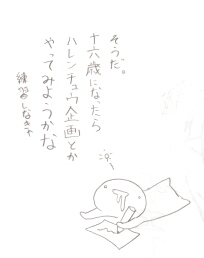 そうだ。
十六歳になったら
ハレンチュウ企画とか
やってみようかな
練習しなきゃ